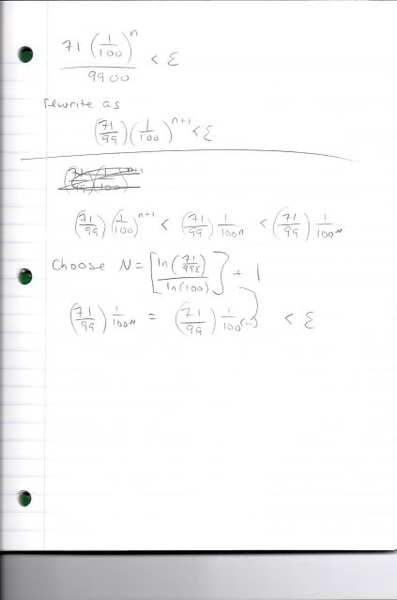 71 (1/100)^n / 9900 < ε
rewrite as
(71/99)(1/100)^n+1 < ε
(71/99)(1/100)^n+1 < (71/99) 1/100^n < (71/99) 1/100^N
Choose N = [ln(71/99ε)/ln(100)] + 1
(71/99) 1/100^N = (71/99) 1/100^(~) < ε